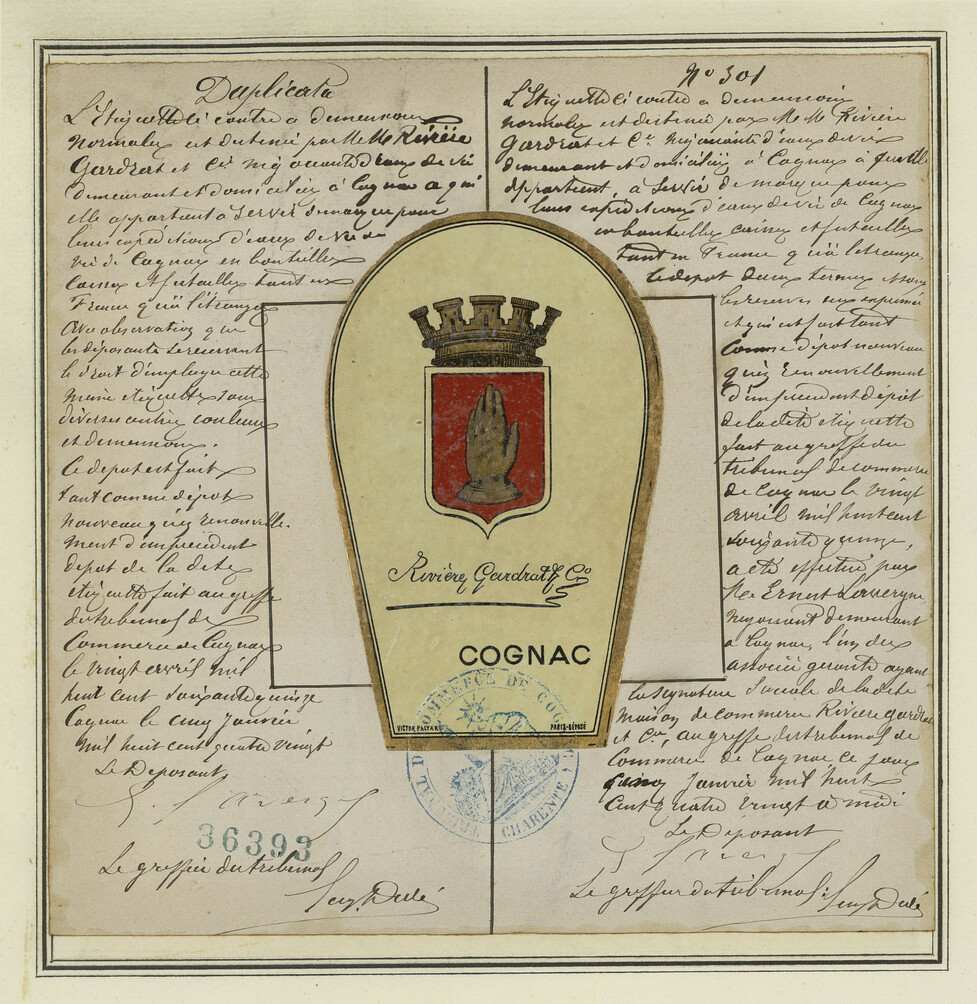 Duplicata
L'Etiquette ci contre a demensions
normales et est destinée par M M Rivière
Gardrat et Cie négociants d'eaux de vie
demeurant et domiciliés à Cognac a qui
elle appartient à servir de marque pour
leurs expéditions d'eaux de vie de
vie de Cognac en bouteilles
Caisses et futailles tant en
France qu'à l'étranger
avec observation que
les déposants se reservent
le droit d'employer cette
même étiquette sous
diverses autres couleurs
et demensions.
Ce depot est fait
tant comme dépôt
nouveau qu'en renouvelle-
ment d'un précédent
depot de la dite
étiquette fait au greffe
du tribunal de
Commerce de Cognac
le vingt avril mil
huit cent soixante quinze
Cognac le cinq Janvier
mil huit cent quatre vingt
Le Déposant
36393
Le greffier du tribunal
No 301
L'Etiquette ci contre a demensions
normales et est destinée par M M Rivière
Gardrat et Cie négociants d'eaux de vie
demeurant et domiciliés à Cognac à qui elle
appartient, à servir de marque pour
leurs expéditions d'eaux de vie de Cognac
en bouteilles caisses et futailles
tant en France qu'à l'étranger.
Ce depot deux termes sous
les reserves sus exprimées
et qui est fait tant
Comme dépôt nouveau
qu'en renouvellement
d'un précédent dépôt
de la dite étiquette
fait au greffe du
tribunal de commerce
de Cognac le vingt
avril mil huit cent
soixante quinze,
a été effectué par
Mr Ernest Lavergne,
négociant demeurant
à Cognac, l'un des
associés gérants ayant
la signature sociale de la dite
maison de commerce Rivière gardrat
et Cie, au greffe du tribunal de
Commerce de Cognac ce jour
cinq Janvier mil huit
Cent quatre vingt à midi
Le Déposant
Le greffier du tribunal:
Rivière Gardrat & Co
COGNAC
VICTOR PALYART
PARIS-DÉPOSÉ
TRIBUNAL DE COMMERCE DE COGNAC
CHARENTE